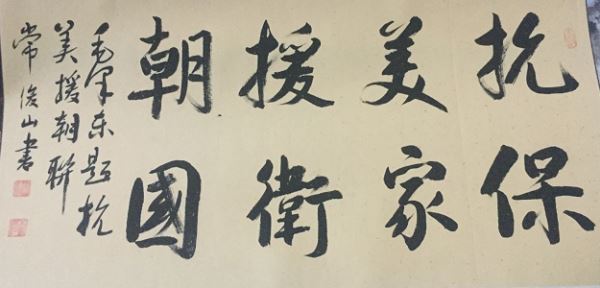 抗美援朝
保家衛國
毛泽东题抗
美援朝聯
常俊山書